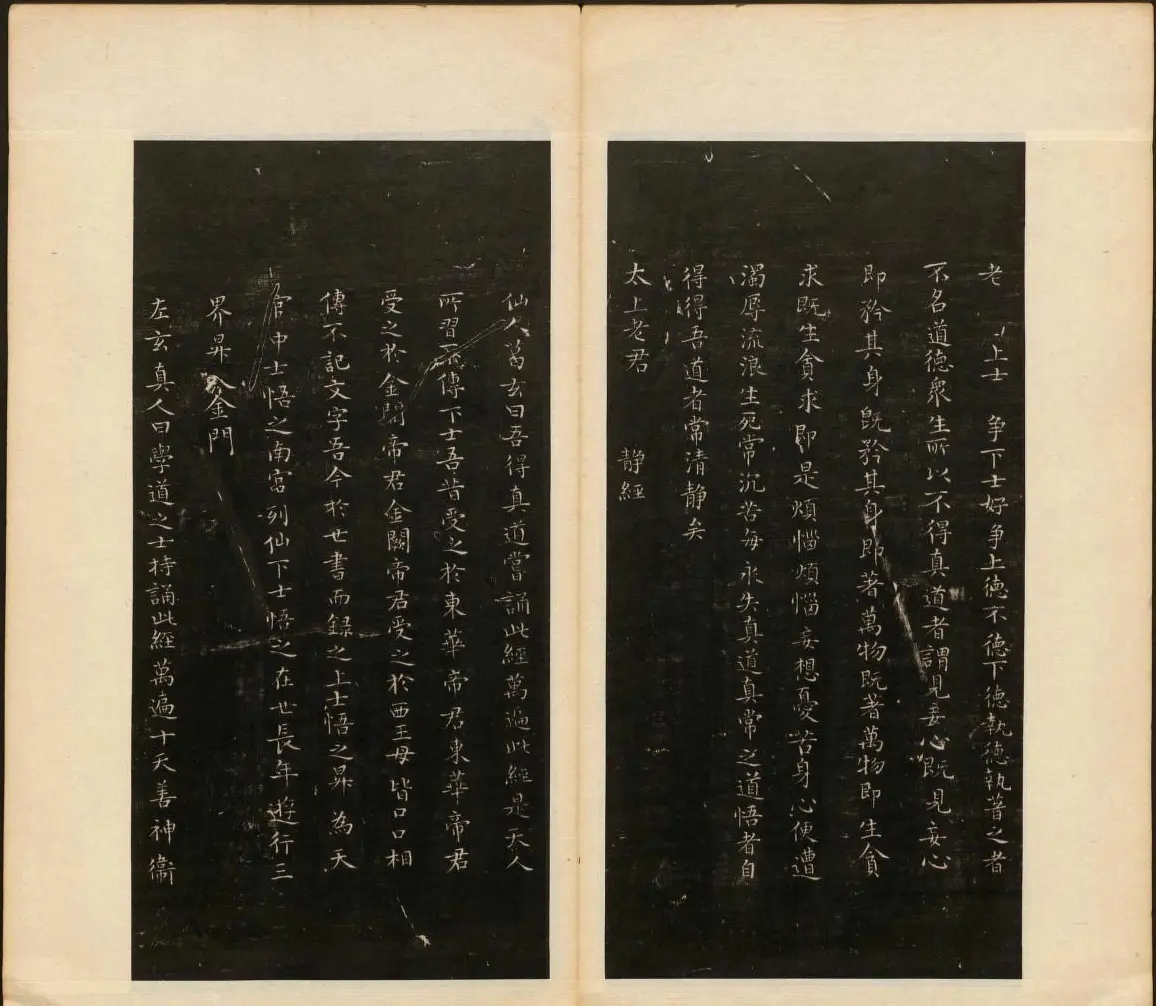 老 上士 争下士好争上德不德下德執德執著之者
不名道德衆生所以不得真道者謂見妄心既見妄心
即矜其身既矜其身即著萬物既著萬物即生貪
求既生貪求即是煩惱煩惱妄想憂苦身心便遭
濁辱流浪生死常沉苦每永失真道真常之道悟者自
得得吾道者常清静矣
太上老君 静經
仙人葛玄曰吾得真道嘗誦此經萬遍此經是天人
所習不傳下士吾昔受之於東華帝君東華帝君
受之於金闕帝君金闕帝君受之於西王母皆口口相
傳不記文字吾今於世書而録之上士悟之昇為天
官中士悟之南宫列仙下士悟之在世長年遊行三
界昇入金門
左玄真人曰學道之士持誦此經萬遍十天善神衛